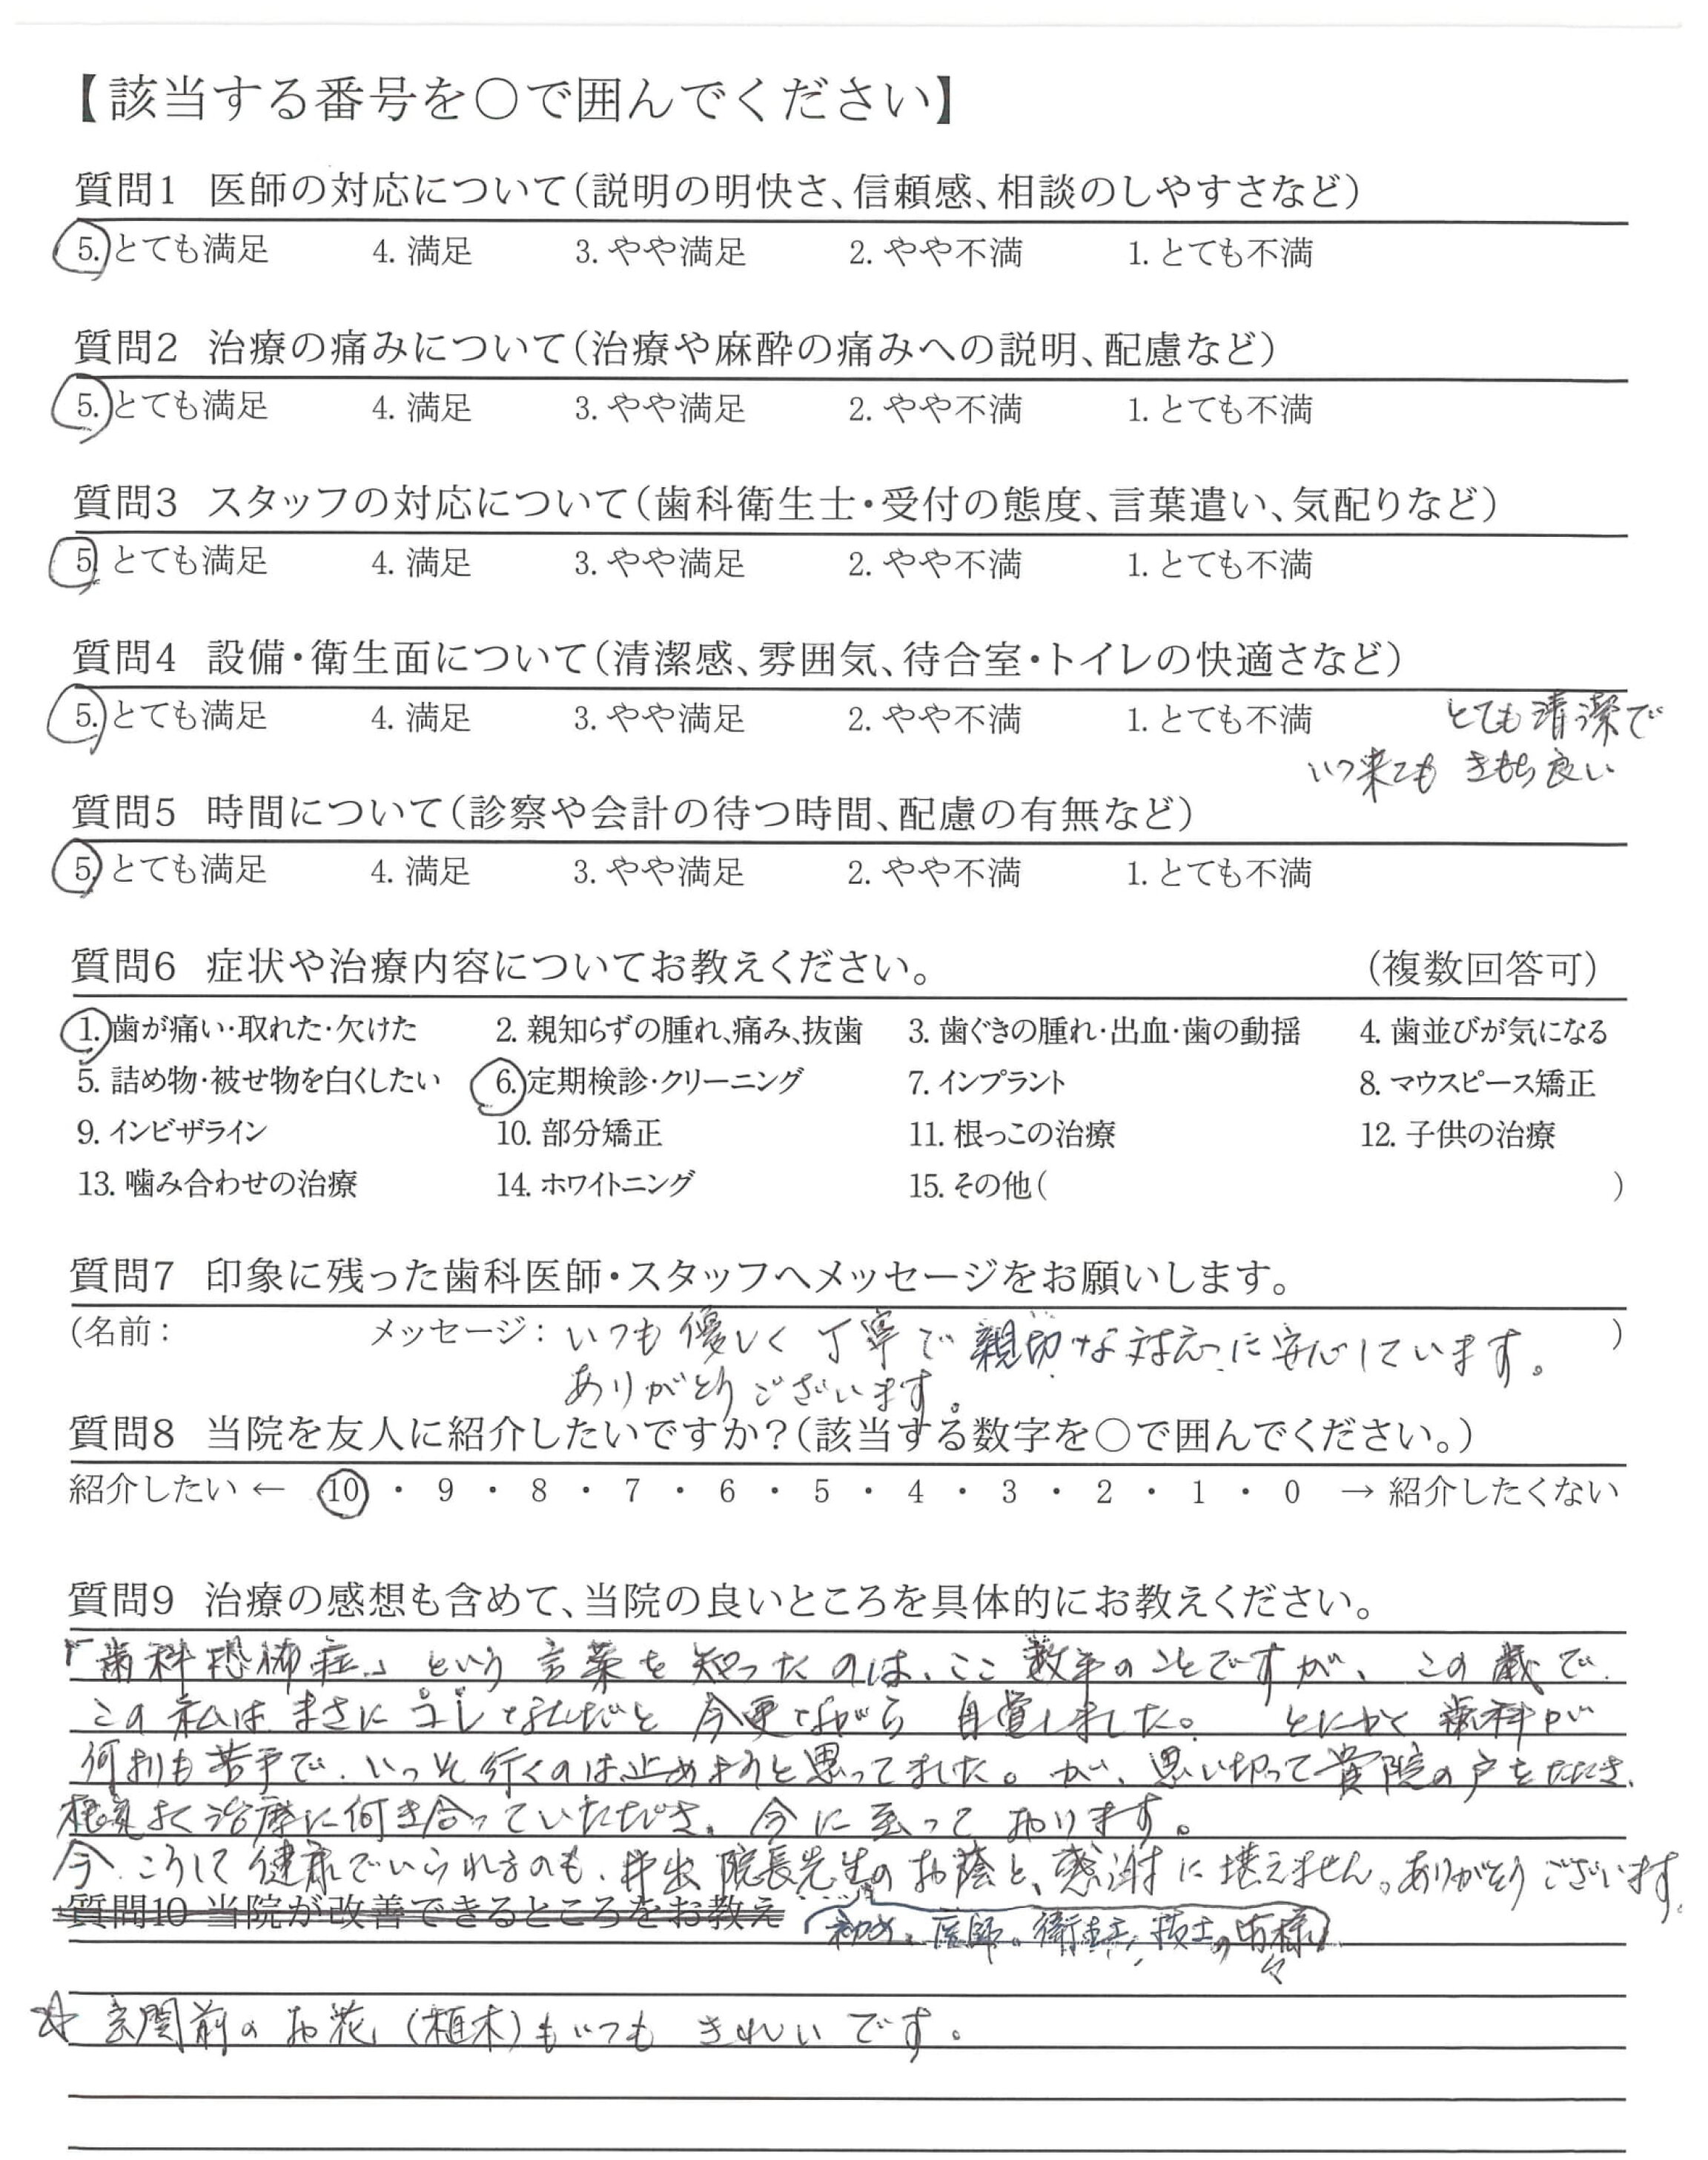 【該当する番号を〇で囲んでください】
質問1 医師の対応について(説明の明快さ、信頼感、相談のしやすさなど)
5. とても満足 4. 満足 3. やや満足 2. やや不満 1. とても不満
質問2 治療の痛みについて(治療や麻酔の痛みへの説明、配慮など)
5. とても満足 4. 満足 3. やや満足 2. やや不満 1. とても不満
質問3 スタッフの対応について(歯科衛生士・受付の態度、言葉遣い、気配りなど)
5. とても満足 4. 満足 3. やや満足 2. やや不満 1. とても不満
質問4 設備・衛生面について(清潔感、雰囲気、待合室・トイレの快適さなど)
5. とても満足 4. 満足 3. やや満足 2. やや不満 1. とても不満 とても清潔で
いつ来ても きもち良い
質問5 時間について(診察や会計の待つ時間、配慮の有無など)
5. とても満足 4. 満足 3. やや満足 2. やや不満 1. とても不満
質問6 症状や治療内容についてお教えください。 (複数回答可)
1. 歯が痛い・取れた・欠けた 2. 親知らずの腫れ、痛み、抜歯 3. 歯ぐきの腫れ・出血・歯の動揺 4. 歯並びが気になる
5. 詰め物・被せ物を白くしたい 6. 定期検診・クリーニング 7. インプラント 8. マウスピース矯正
9. インビザライン 10. 部分矯正 11. 根っこの治療 12. 子供の治療
13. 噛み合わせの治療 14. ホワイトニング 15. その他( )
質問7 印象に残った歯科医師・スタッフへメッセージをお願いします。
(名前: メッセージ: いつも優しく 丁寧で 親切な対応に安心しています。 )
ありがとうございます。
質問8 当院を友人に紹介したいですか?(該当する数字を〇で囲んでください。)
紹介したい ← 10 ・ 9 ・ 8 ・ 7 ・ 6 ・ 5 ・ 4 ・ 3 ・ 2 ・ 1 ・ 0 → 紹介したくない
質問9 治療の感想も含めて、当院の良いところを具体的にお教えください。
『歯科恐怖症』という言葉を知ったのは、ここ数年のことですが、この歳で
この私は まさに コレなんだと 今更ながら 自覚しました。 とにかく 歯科が
何よりも苦手で、いっそ行くのは止めようと思ってました。が、思い切って貴院の戸をたたき、
根気よく治療に向き合っていただき、今に至っております。
今、こうして健康でいられるのも、井出院長先生のお蔭と、感謝に堪えません。ありがとうございます。
質問10 当院が改善できるところをお教え
初め、医師、衛生士、技士の皆様々
☆ 玄関前のお花(植木)もいつも きれいです。